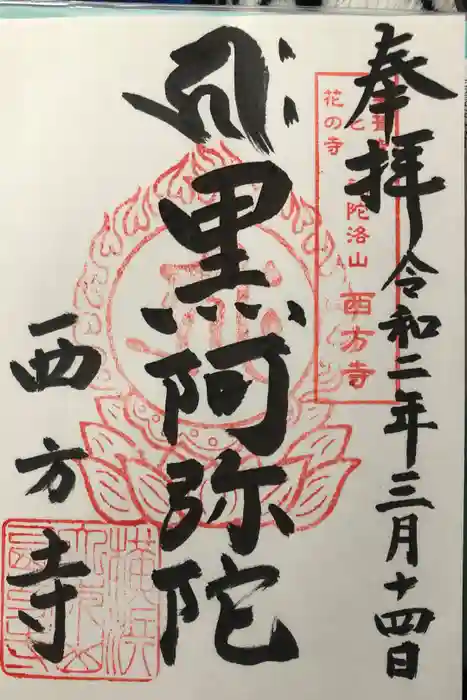 奉拝 令和二年三月十四日
花の寺
陀洛山 西方寺
黒阿弥陀
西方寺
横浜